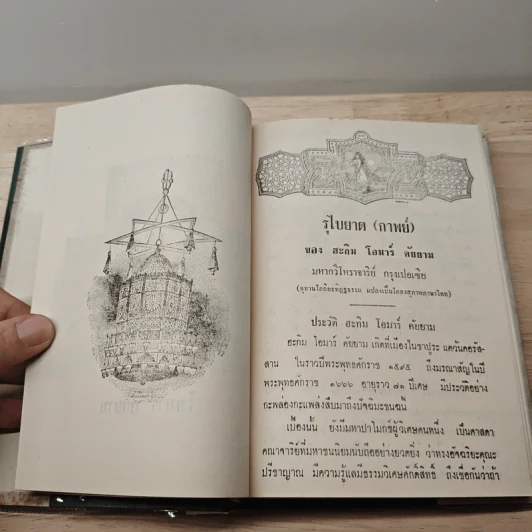 รุไบยาต (กาพย์)
ของ ฮะกิม โอมาร์ คัยยาม
มหากวีโหราจารย์ กรุงเปอเซีย
(อุทานโลกิยะทิฏฐธรรม แปลงเป็นโคลงสุภาพภาษาไทย)
ประวัติ ฮะกิม โอมาร์ คัยยาม
ฮะกิม โอมาร์ คัยยาม เกิดที่เมืองไนชาปูระ แคว้นคอรัส-
สาน ในราวปีพระพุทธศักราช ๑๕๙๕ ถึงมรณาสัญในปี
พระพุทธศักราช ๑๖๖๖ อายุราว ๗๑ ปีเศษ มีประวัติอย่าง
กะพล่องกะแพล่งสืบมาถึงปัจฉิมะชนฉนี้
เบื้องนั้น ยังมีมหาปาโมกข์ผู้วิเศษคนหนึ่ง เป็นศาสดา
คณาจารย์ที่มหาชนนิยมนับถืออย่างยวดยิ่ง ว่าทรงอัจฉริยะคุณะ
ปรีชาญาณ มีความรู้แลมีธรรมวิเศษศักดิ์สิทธิ์ ถึงเชื่อกันว่าถ้า